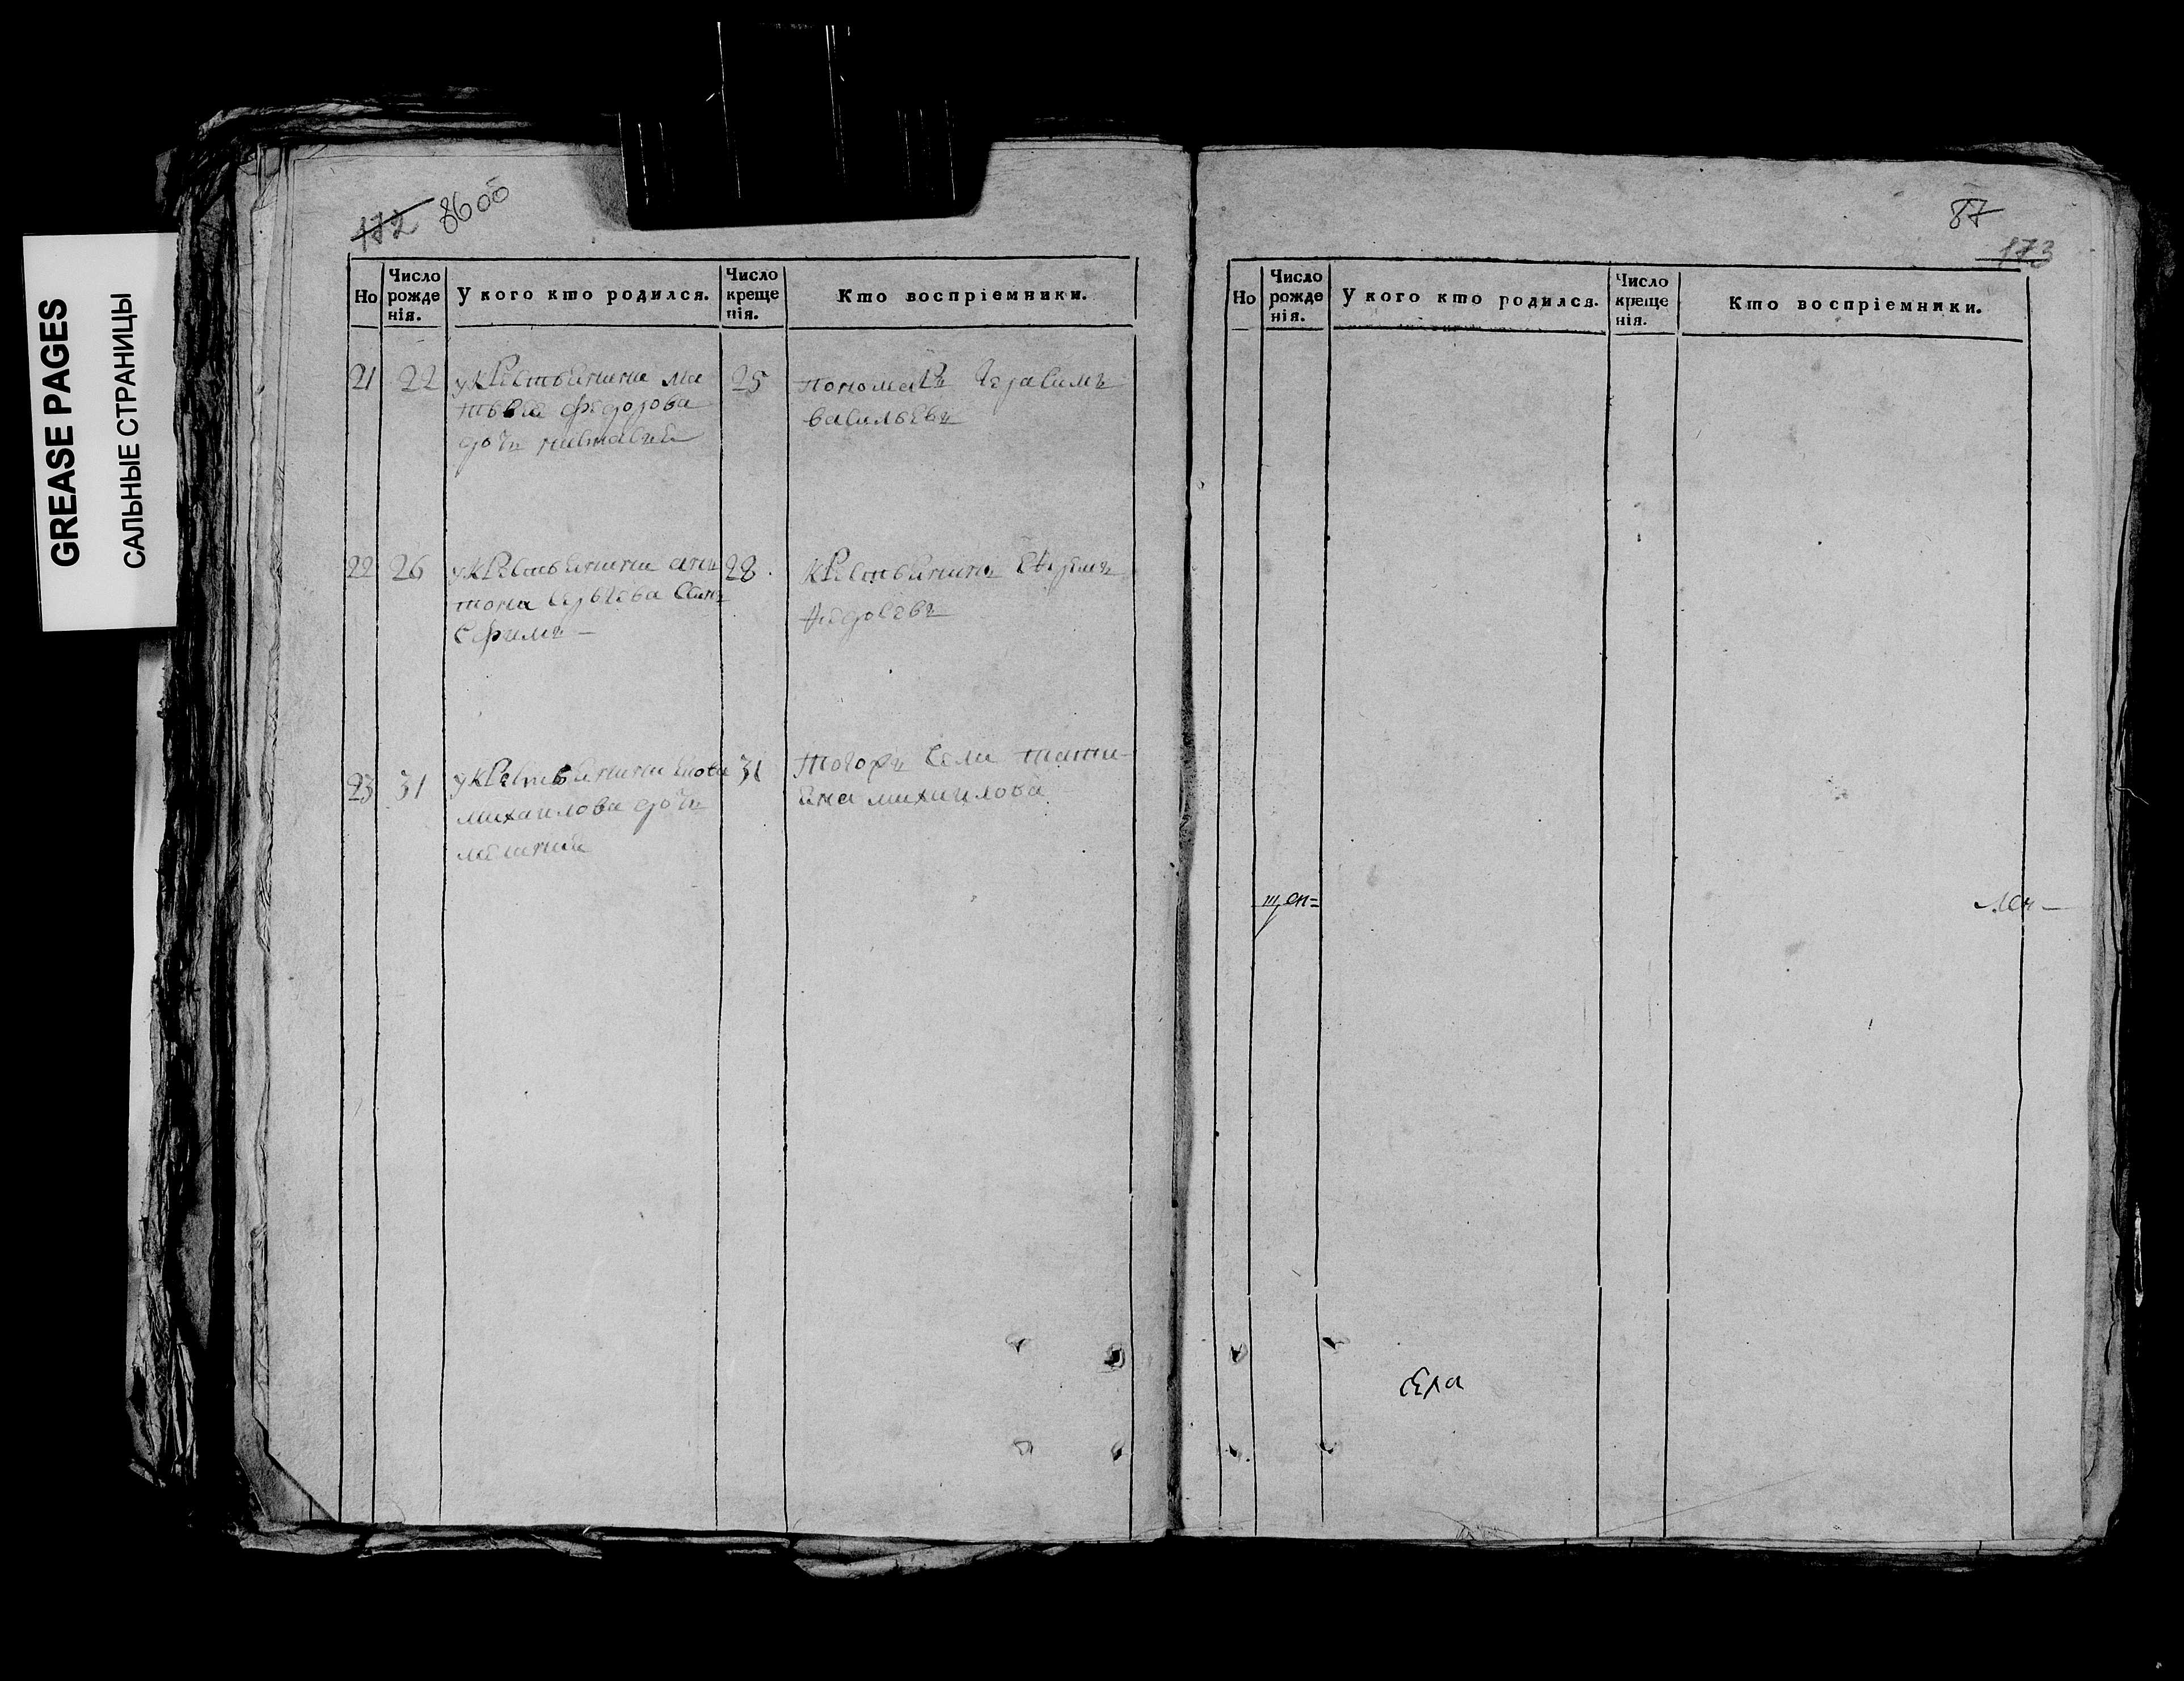 GREASE PAGES
САЛЬНЫЕ СТРАНИЦЫ
172 86об
Но
Число рожде нія.
У кого кто родился.
Число креще нія.
Кто воспріемники.
21 22 укрестьянина ма
твея федорова
дочь настасия
25 пономарь герасимъ
васильевъ
22 26 укрестьянина ан
тона сергѣева сынъ
ефимъ
28 крестьянинъ
23 31 укрестьянина
михаилова дочь
31 тогожъ села тати
яна михаилова
87
173
Но
Число рожде нія.
У кого кто родился.
Число креще нія.
Кто воспріемники.
щен=